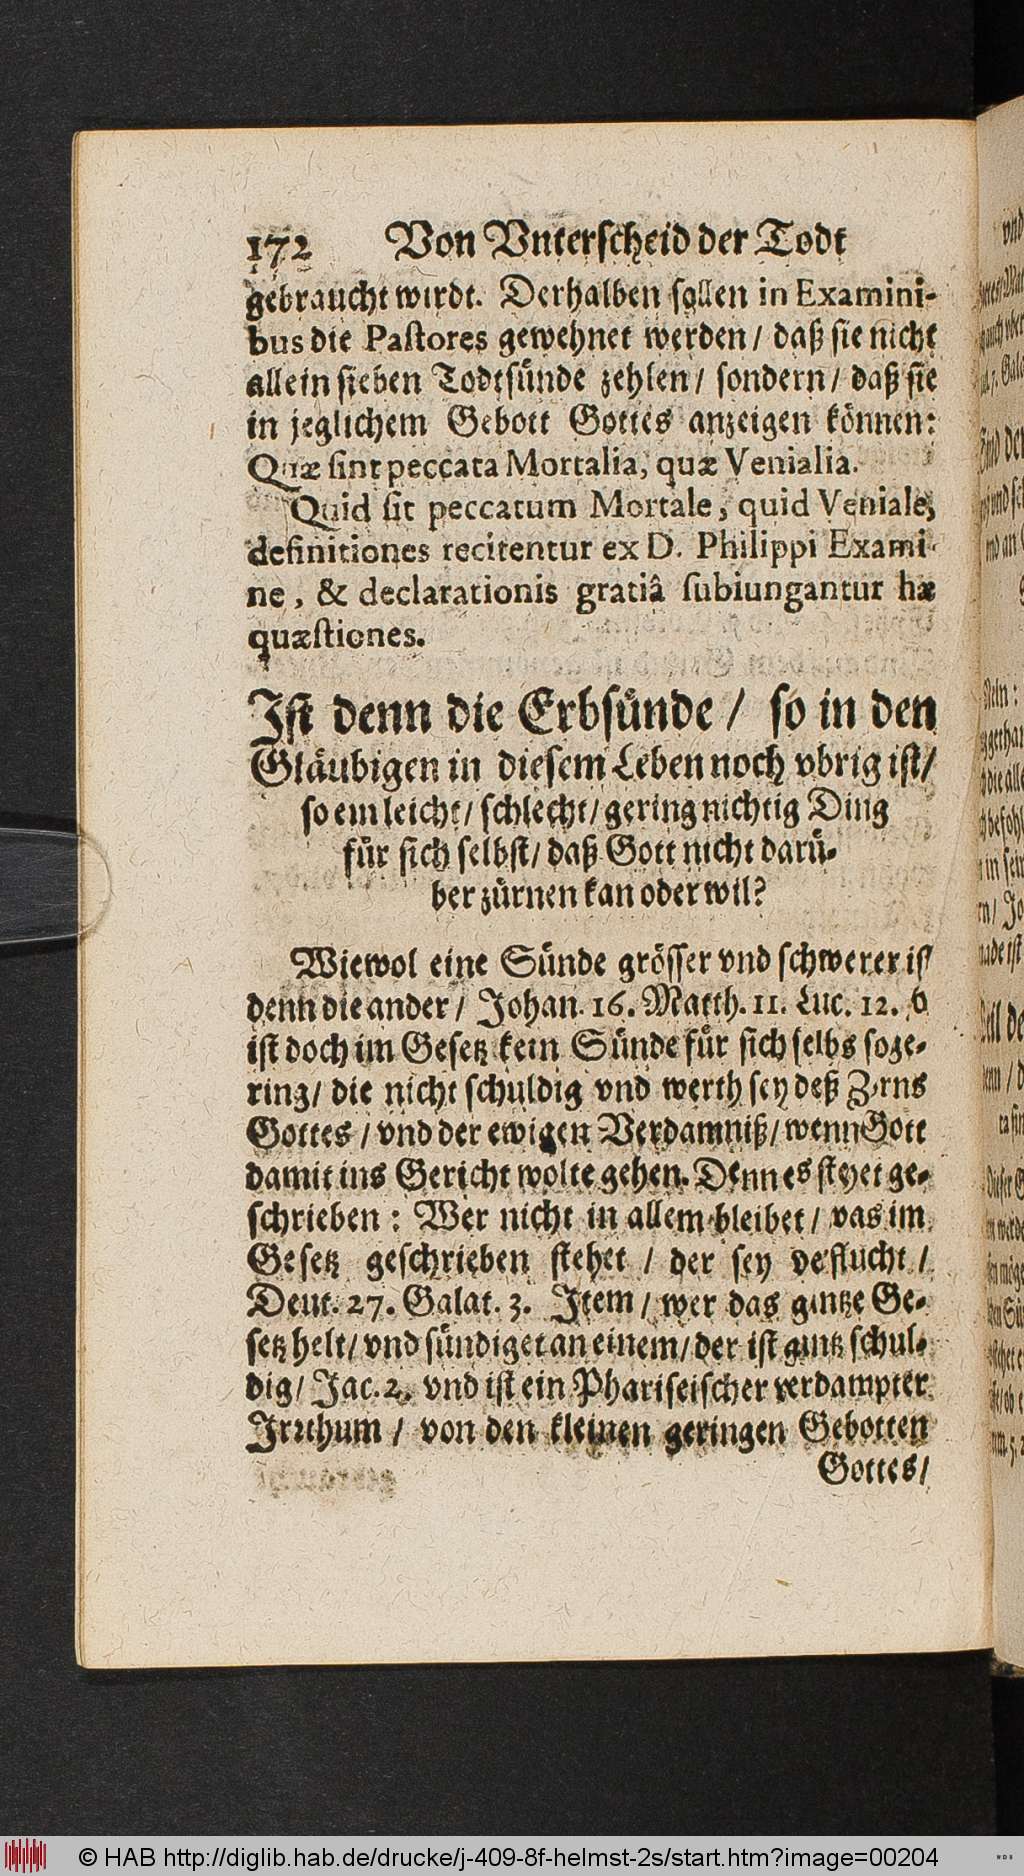 172 Von Vnterscheid der Todt
gebraucht wirdt. Derhalben sollen in Examini-
bus die Pastores gewehnet werden / daß sie nicht
allein sieben Todtsünde zehlen / sondern / daß sie
in jeglichem Gebott Gottes anzeigen können:
Quæ sint peccata Mortalia, quæ Venialia.
Quid sit peccatum Mortale, quid Veniale,
definitiones recitentur ex D. Philippi Exami-
ne, & declarationis gratiâ subiungantur hæ
quæstiones.
Ist denn die Erbsünde / so in den
Gläubigen in diesem Leben noch vbrig ist /
so ein leicht / schlecht / gering nichtig Ding
für sich selbst / daß Gott nicht darü-
ber zürnen kan oder wil?
Wiewol eine Sünde grösser vnd schwerer ist
denn die ander / Johan. 16. Matth. 11. Luc. 12. so
ist doch im Gesetz kein Sünde für sich selbs so ge-
ring / die nicht schuldig vnd werth sey deß Zorns
Gottes / vnd der ewigen Verdamniß / wenn Gott
damit ins Gericht wolte gehen. Denn es stehet ge-
schrieben : Wer nicht in allem bleibet / was im
Gesetz geschrieben stehet / der sey verflucht /
Deut. 27. Galat. 3. Item / wer das gantze Ge-
setz helt / vnd sündiget an einem / der ist gantz schul-
dig / Jac. 2. vnd ist ein Phariseischer verdampter
Irrthum / von den kleinen geringen Gebotten
Gottes /
© HAB http://diglib.hab.de/drucke/j-409-8f-helmst-2s/start.htm?image=00204